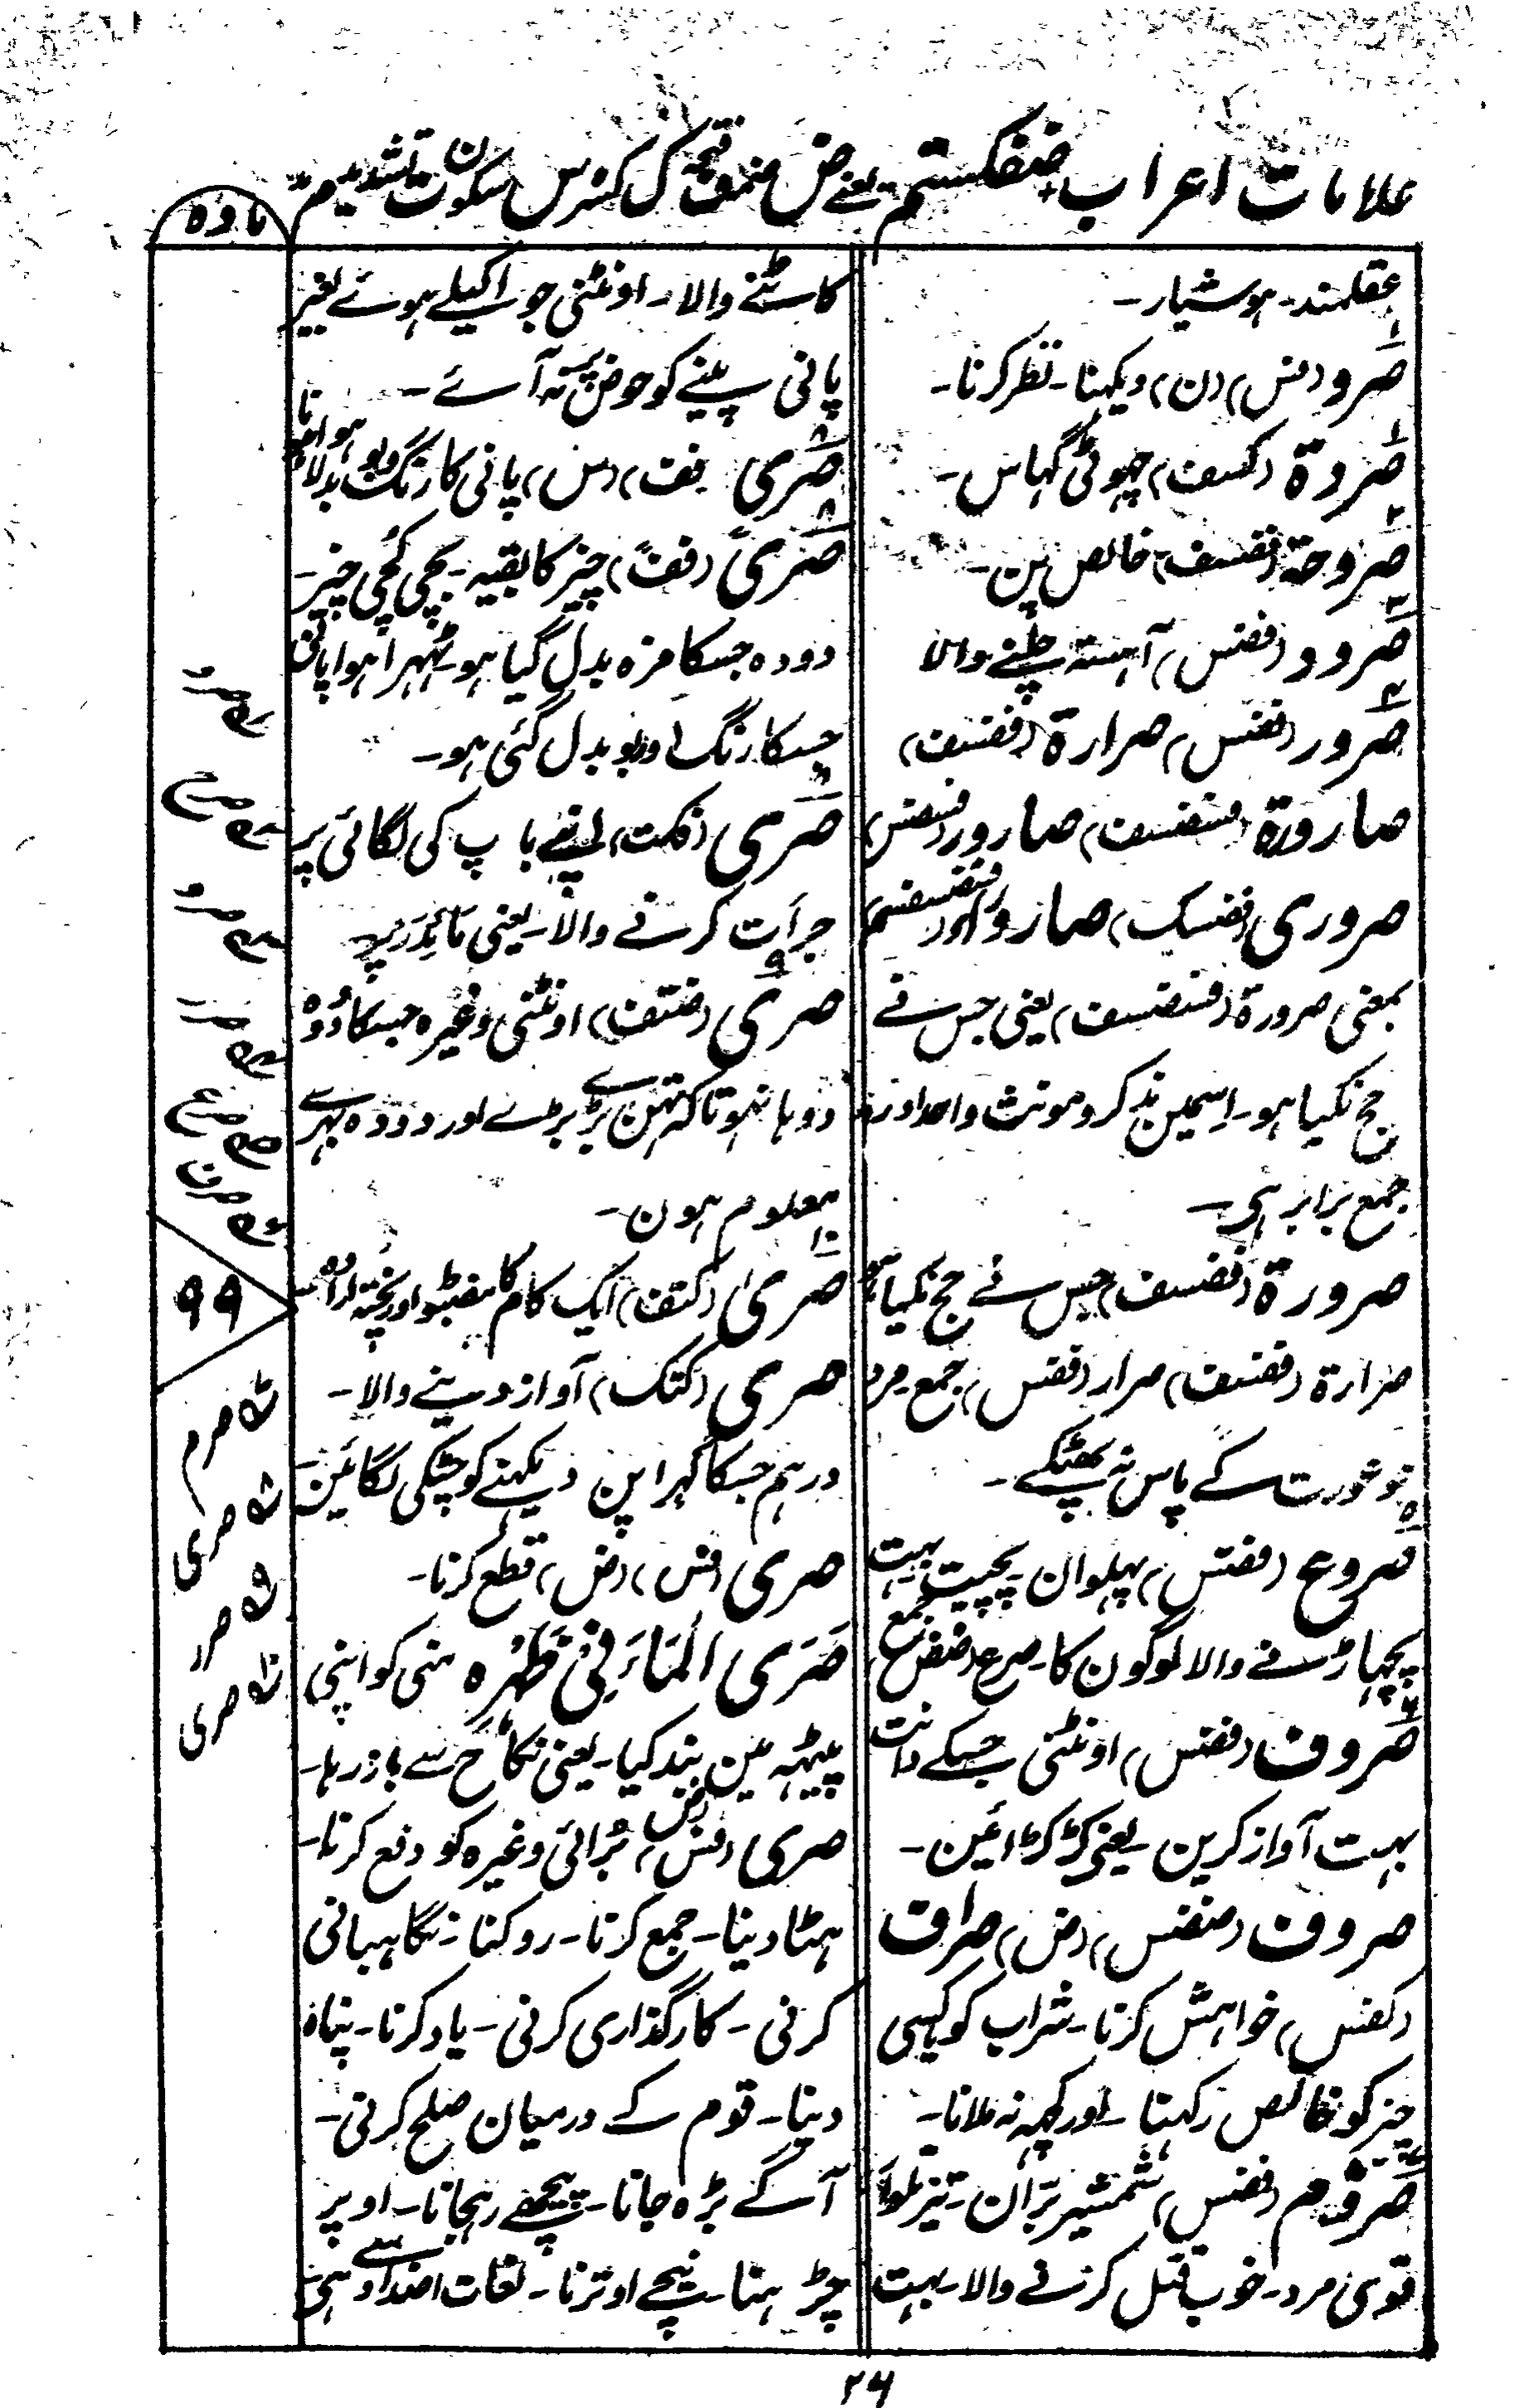 علامات اعراب ضفکستم یعنے ض ضمہ ف فتحہ ک کسرہ س سکون ت تشدید م مد
مادہ
عقلمند۔ ہوشیار۔
صَرو (فس) (ن) دیکہنا۔ نظر کرنا۔
صَروة (کسف) چہوٹی گہاس۔
صَروحة (ففسف) خالص پن۔
صَرود (ففس) آہستہ چلنے والا
صَرور (ففس) صرارة (ففسف)
صارورة (فسفسف) صارور (فسفس)
صروری (ففسک) صاروراء
بمعنی صرورة (ففسف) یعنی جس نے
حج نکیا ہو۔ اسمین مذکر و مونث واحد اور
جمع برابر ہی۔
صرورة (ففسف) جس نے حج نکیا ہو
صرارة (ففسف) صرار (ففس) جمع۔ مرد
جو عورت کے پاس نہ پھٹکے۔
صَروع (ففس) پہلوان۔ پچیت۔ بہت
پچہاڑنے والا لوگون کا۔ صرع (ضفض) جمع
صَروف (ففس) اونٹنی جسکے دانت
بہت آواز کرین۔ یعنی کڑکڑائین۔
صروف (ضفس) (ض) صراف
(کفس) خواہش کرنا۔ شراب کو یا کسی
چیز کو خالص رکہنا۔ اور کچہہ نہ ملانا۔
صَروم (ففس) شمشیر برّان۔ تیز تلوار
قوی مرد۔ خوب قتل کرنے والا۔ بہت
کاٹنے والا۔ اونٹنی جو اکیلے ہوئے بغیر
پانی پینے کو حوض پر نہ آئے۔
صَرَی (فف) (س) پانی کا رنگ و بو بدلا ہوا ہونا
صَریً (ففً) چیز کا بقیہ۔ بچی کُچی چیز۔
دودہ جسکا مزہ بدل گیا ہو۔ ٹہہرا ہوا پانی
جسکا رنگ اور بو بدل گئی ہو۔
صَری (فکت) اپنے باپ کی لگائی پر
جرأت کرنے والا۔ یعنی مائندر پر
صری (ضتف) اونٹنی وغیرہ جسکا دُودہ
دوہا نہو تاکہ تہن بڑے بڑے اور دودہ بہرے
معلوم ہون۔
صَری (کتف) ایک کام کا مضبوط اور پختہ ارادہ
صری (کتک) آواز دینے والا۔
درہم جسکا کہرا پن دیکہنے کو چٹکی لگائین
صری (فس) (ض) قطع کرنا۔
صَرَی الْمَاءَ فِیْ ظَهْرِہ منی کو اپنی
پیٹہہ مین بند کیا۔ یعنی نکاح سے باز رہا۔
صری (فس) (ض) بُرائی وغیرہ کو دفع کرنا۔
ہٹا دینا۔ جمع کرنا۔ روکنا۔ نگاہبانی
کرنی۔ کارگذاری کرنی۔ یاد کرنا۔ پناہ
دینا۔ قوم کے درمیان صلح کرنی۔
آگے بڑہ جانا۔ پیچھے رہجانا۔ اوپر
چڑہنا۔ نیچے اوترنا۔ لغات اضداد سے ہی
۹۹
صرم
صری
صرر
صری
۲۴